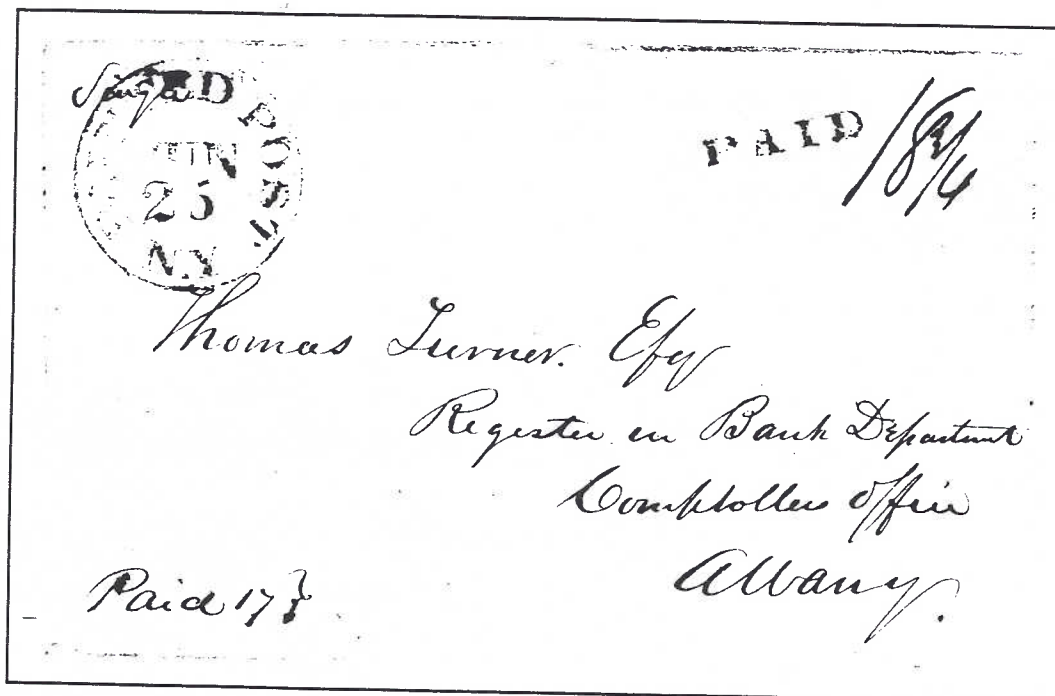 PAID 18 3/4
POST
JUN
25
N.Y
Thomas Turner. Esq
Register in Bank Department
Comptollers Office
Albany.
Paid 17